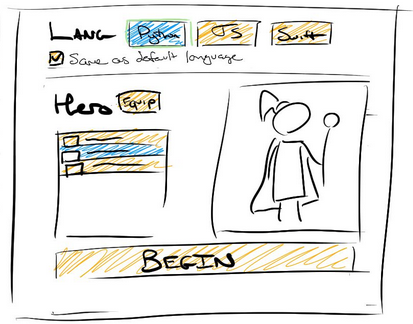 LANG Python JS Swift
Save as default language
Hero Equip
BEGIN